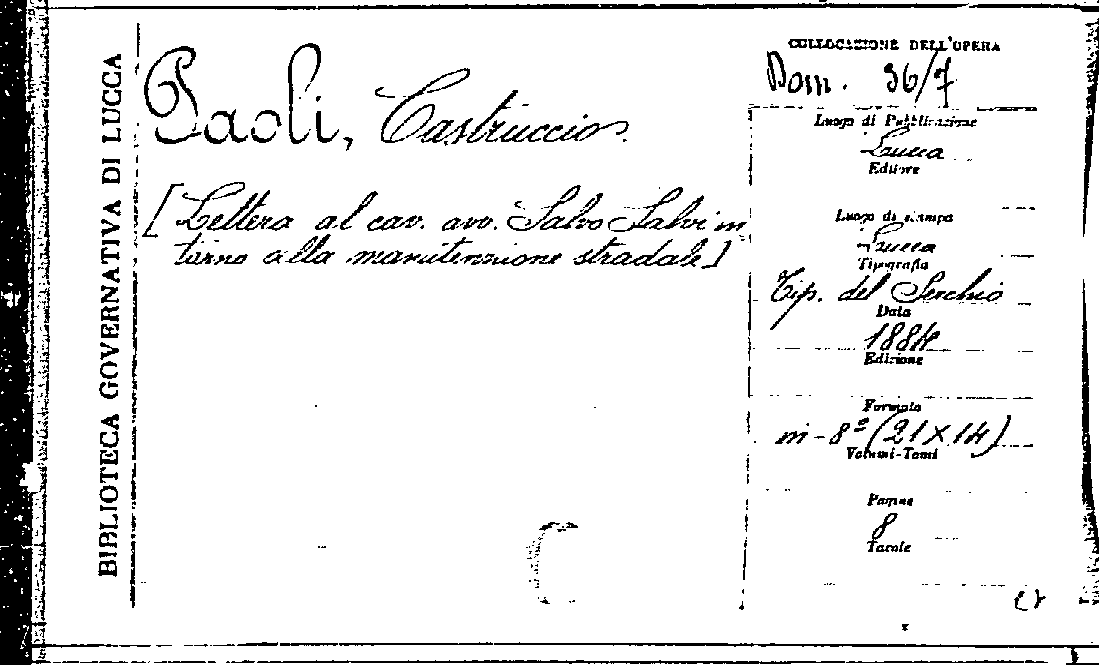 BIBLIOTECA GOVERNATIVA DI LUCCA
Paoli, Castruccio.
[Lettera al cav. avv. Salvo Salvi in
torno alla manutenzione stradale]
COLLOCAZIONE DELL'OPERA
Dom. 36/7
Luogo di Pubblicazione
Lucca
Editore
Luogo di stampa
Lucca
Tipografia
Tip. del Serchio
Data
1884
Edizione
Formato
in-8º (21 X 14)
Volumi-Tomi
Pagine
8
Tavole